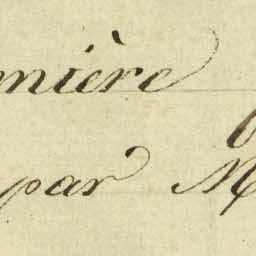 mière
par M